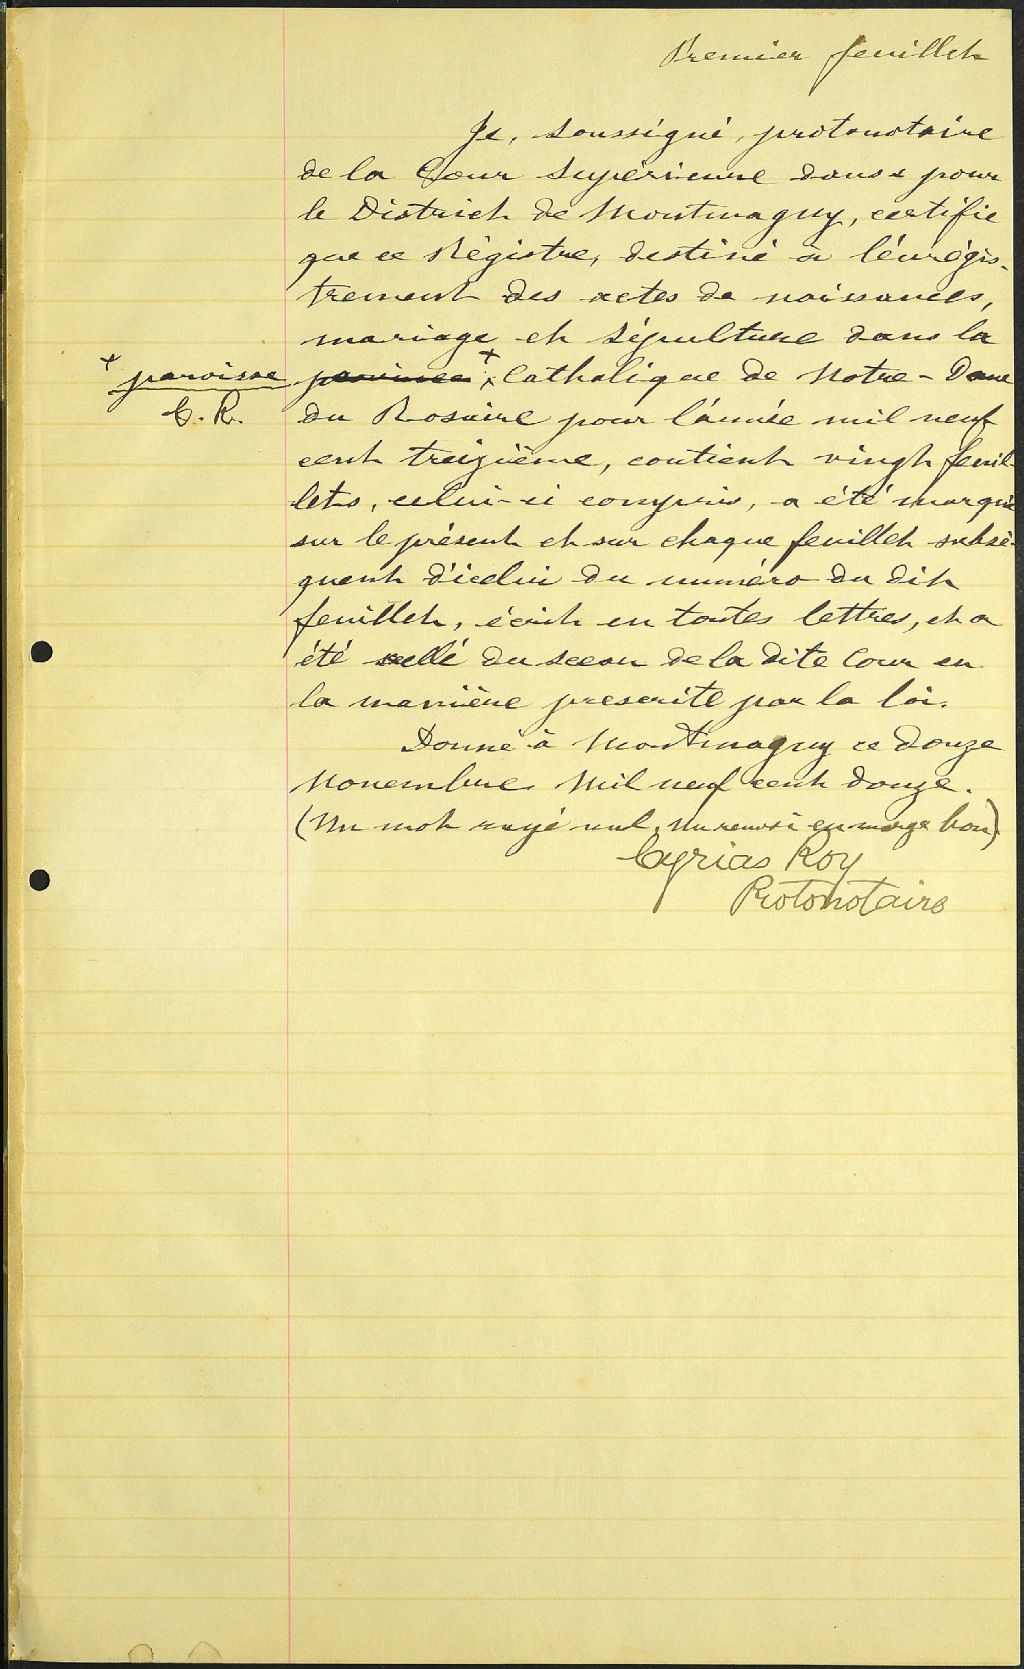 Premier feuillet
Je, soussigné, protonotaire
de la Cour Supérieure dans & pour
le District de Montmagny, certifie
que ce Régistre, destiné à l'enrégis-
trement des actes de naissances,
mariage et sépulture dans la
+ paroisse province + Catholique de Notre-Dame
C. R. du Rosaire pour l'année mil neuf
cent treizième, contient vingt feuil-
lets, celui-ci compris, a été marqué
sur le présent et sur chaque feuillet subsé-
quent d'icelui du numéro du dit
feuillet, écrit en toutes lettres, et a
été scellé du sceau de la dite Cour en
la manière prescrite par la loi.
Donné à Montmagny ce douze
Novembre mil neuf cent douze.
(Un mot rayé nul, un renvoi en marge bon)
Cyrias Roy
Protonotaire